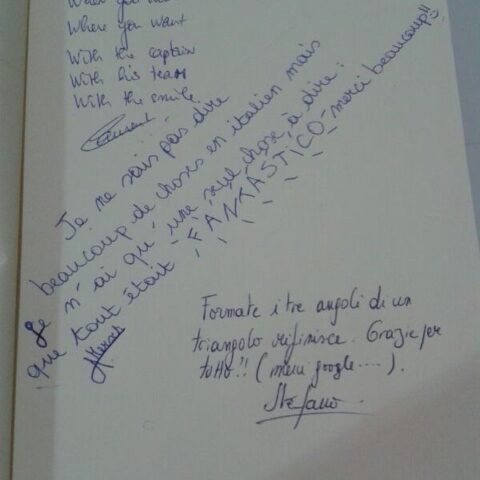 When you
Where you want
With the captain
With his team
With the smile
Clément
Je ne sais pas dire
beaucoup de choses en italien mais
Je n'ai qu'une seule chose à dire :
que tout était FANTASTICO merci beaucoup!!
Formate i tre angoli di un
triangolo rifinisce. Grazie per
tutto!! (merci google....).
Stefano